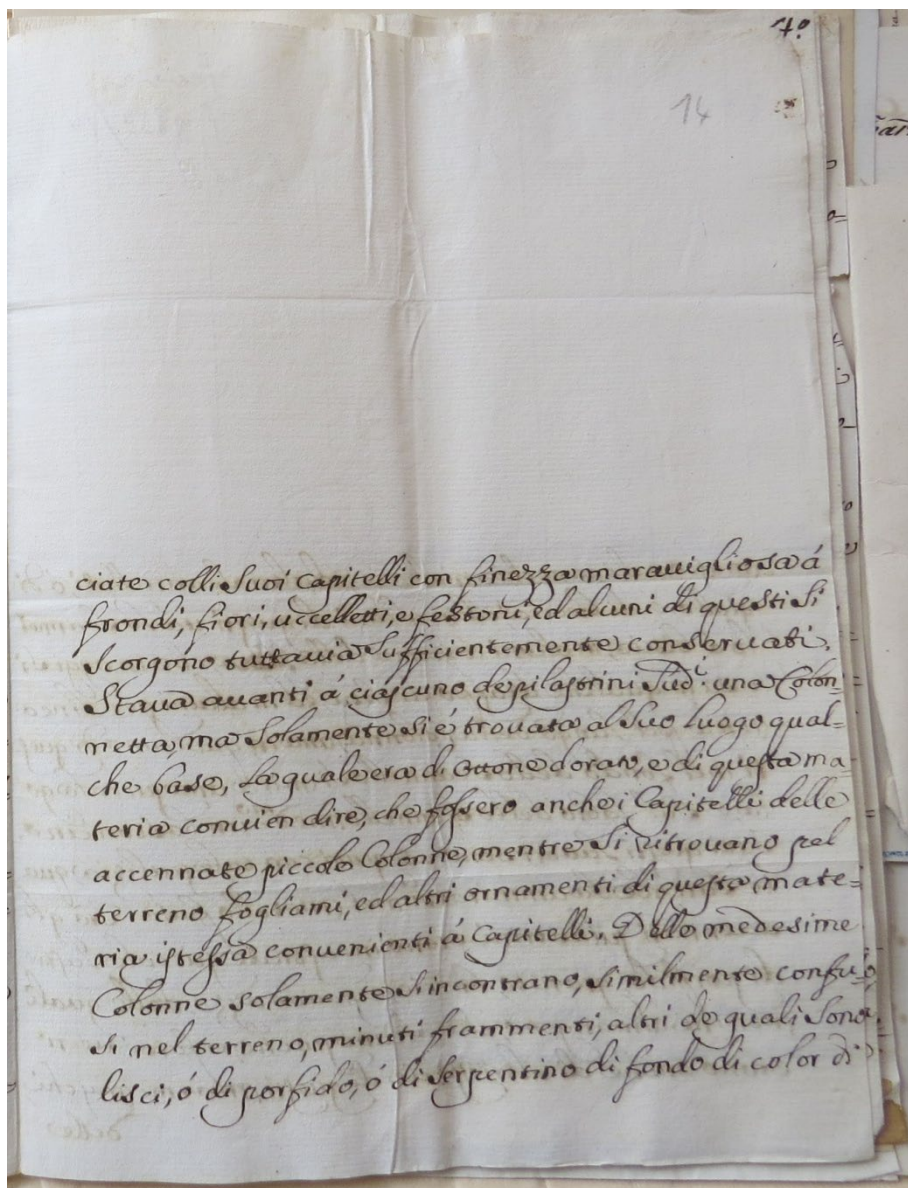 7º
14
ciate colli suoi Capitelli con finezza marauigliosa á
frondi, fiori, uccelletti, e festoni, ed alcuni di questi si
scorgono tuttauia sufficientemente conseruati.
Staua auanti á ciascuno de pilastrini sud.ⁱ una Colon=
netta, ma solamente si é trouata al suo luogo qual=
che base, la quale era di ottone dorato, e di questa ma=
teria conuien dire, che fossero anche i Capitelli delle
accennate piccole Colonne, mentre si ritrouano pel
terreno fogliami, ed altri ornamenti di questa mate=
ria istessa convenienti á Capitelli. Delle medesime
Colonne solamente si incontrano, similmente confu=
si nel terreno, minuti frammenti, altri de quali sono
lisci, ó di porfido, ó di serpentino di fondo di color di